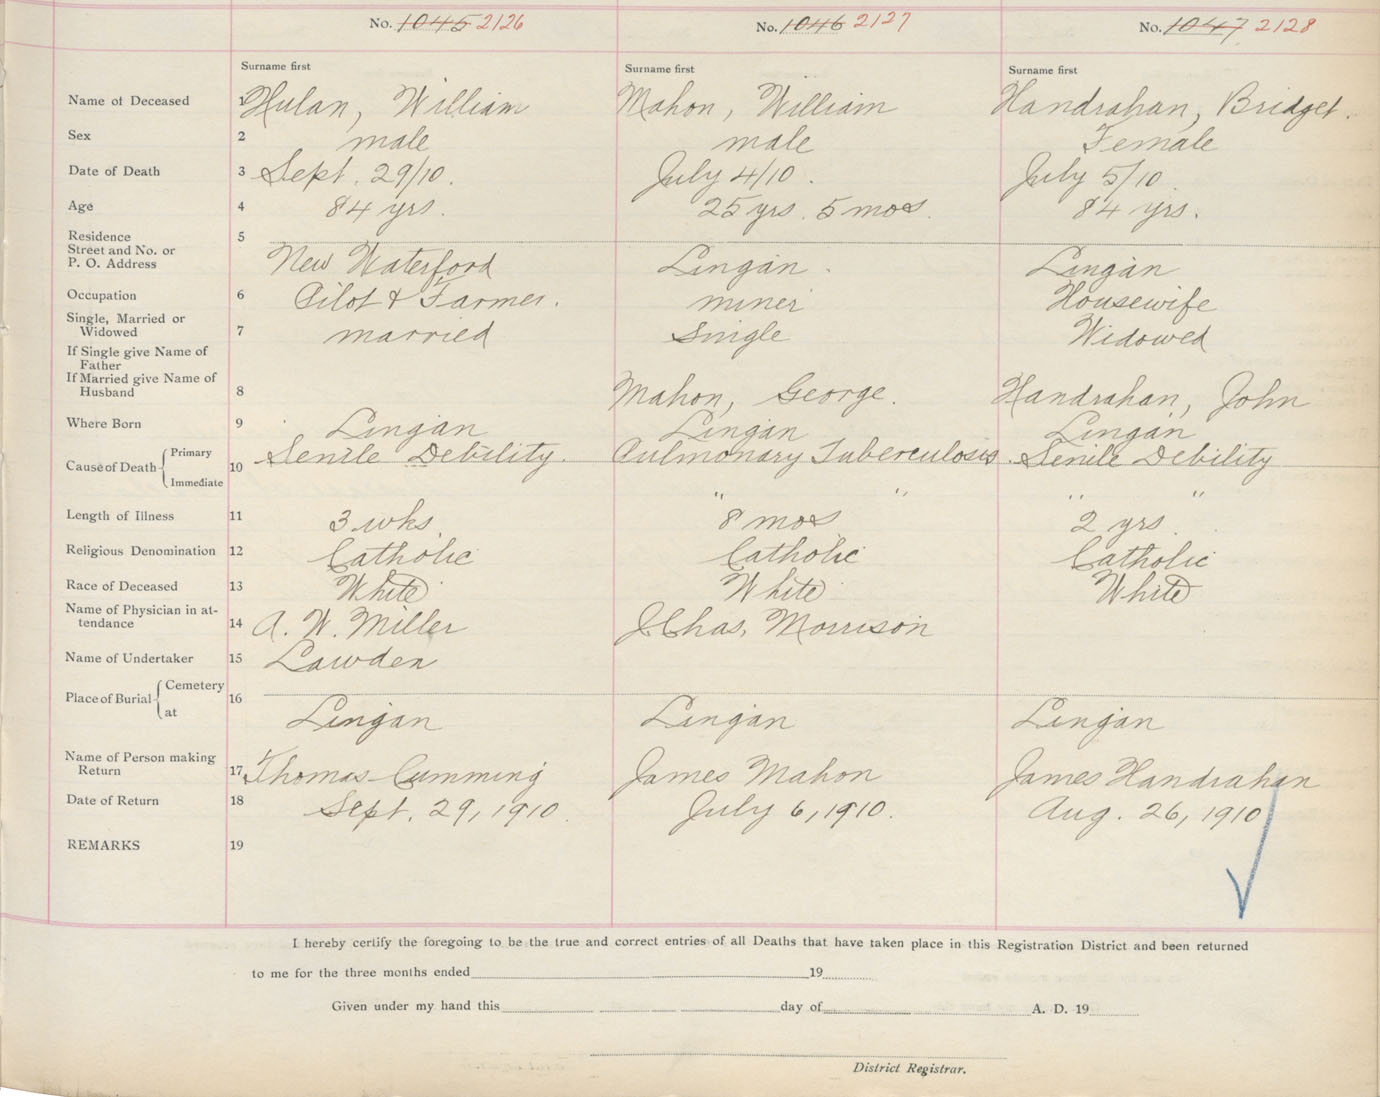 No. 1045 2126 No. 1046 2127 No. 1047 2128
Surname first Surname first Surname first
Name of Deceased 1 Hulan, William Mahon, William Handrahan, Bridget.
Sex 2 male male Female
Date of Death 3 Sept. 29/10. July 4/10. July 5/10
Age 4 84 yrs. 25 yrs. 5 mos. 84 yrs.
Residence 5
Street and No. or
P. O. Address New Waterford Lingan. Lingan
Occupation 6 Pilot & Farmer. miner Housewife
Single, Married or
Widowed 7 married Single Widowed
If Single give Name of
Father
If Married give Name of
Husband 8 Mahon, George. Handrahan, John
Where Born 9 Lingan Lingan Lingan
Cause of Death Primary 10 Senile Debility. Pulmonary Tuberculosis. Senile Debility
Immediate " " " "
Length of Illness 11 3 wks. 8 mos 2 yrs.
Religious Denomination 12 Catholic Catholic Catholic
Race of Deceased 13 White White White
Name of Physician in at-
tendance 14 A. W. Miller J. Chas. Morrison
Name of Undertaker 15 Lawden
Place of Burial Cemetery 16
at Lingan Lingan Lingan
Name of Person making
Return 17 Thomas Cumming James Mahon James Handrahan
Date of Return 18 Sept. 29, 1910. July 6, 1910. Aug. 26, 1910
REMARKS 19
I hereby certify the foregoing to be the true and correct entries of all Deaths that have taken place in this Registration District and been returned
to me for the three months ended 19
Given under my hand this day of A. D. 19
District Registrar.